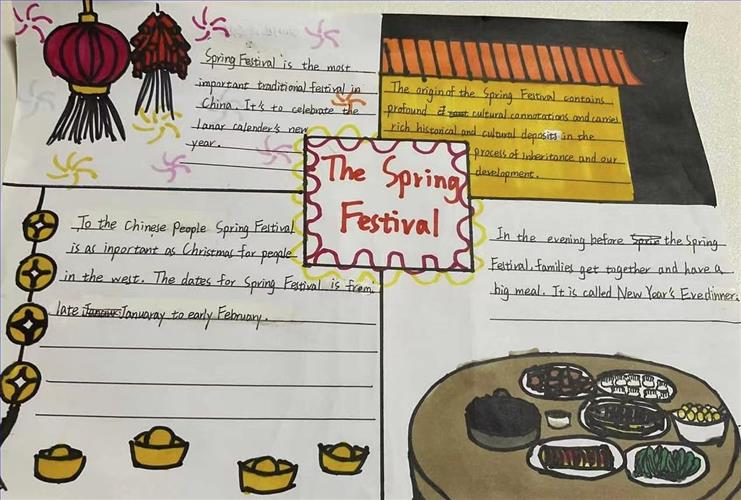 Spring Festival is the most
important traditional festival in
China. It's to celebrate the
lanar calender's new
year.
The origin of the Spring Festival contains
profound cultural connotations and carries
rich historical and cultural deposits in the
process of inheritance and our
development.
The Spring
Festival
To the Chinese People Spring Festival
is as inportant as Christmas for people
in the west. The dates for Spring Festival is from
late Januaray to early February.
In the evening before the Spring
Festival, families get together and have a
big meal. It is called New Year's Eve dinner.